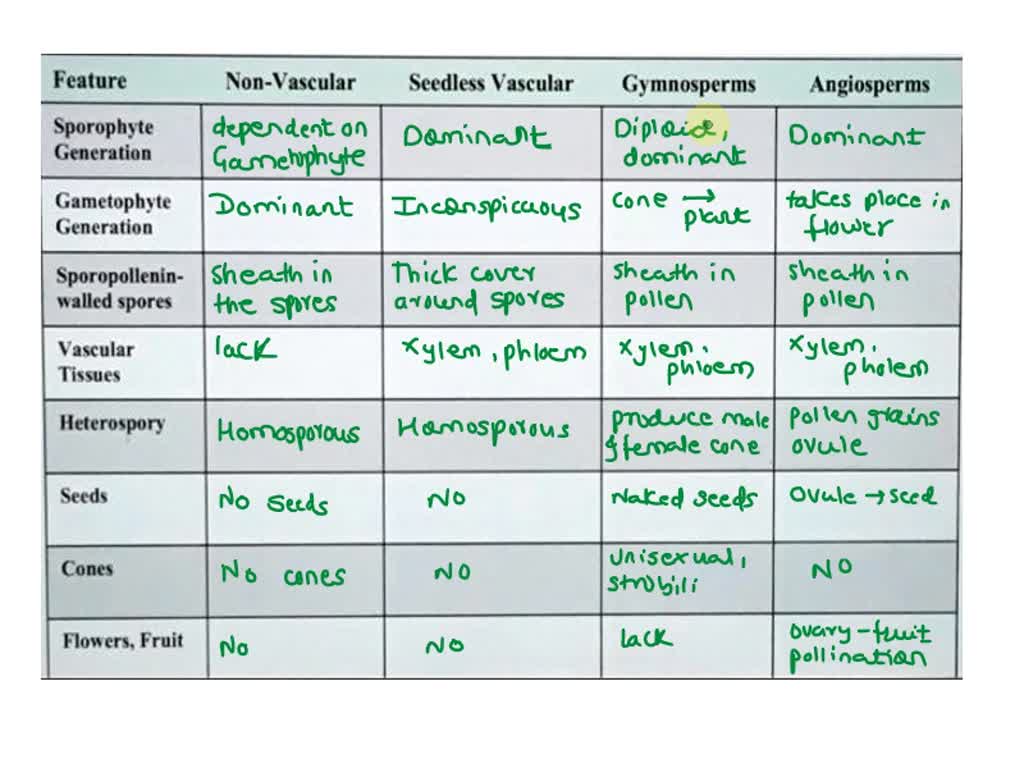 Feature Non-Vascular Seedless Vascular Gymnosperms Angiosperms
Sporophyte Generation
dependent on Gametophyte
Dominant
Diploid, dominant
Dominant
Gametophyte Generation
Dominant
Inconspicuous
cone → plant
takes place in flower
Sporopollenin-walled spores
Sheath in the spores
Thick cover around spores
sheath in pollen
sheath in pollen
Vascular Tissues
lack
Xylem, phloem
Xylem, phloem
Xylem, pholem
Heterospory
Homosporous
Homosporous
produce male & female cone
pollen grains ovule
Seeds
No seeds
NO
Naked seeds
Ovule → seed
Cones
No cones
NO
Unisexual, strobili
NO
Flowers, Fruit
No
NO
lack
ovary-fruit pollination